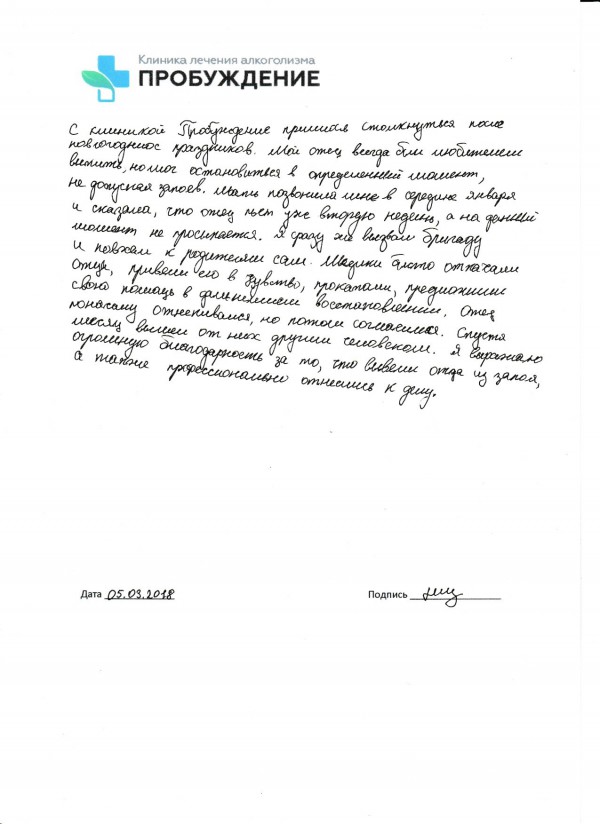 Клиника лечения алкоголизма
ПРОБУЖДЕНИЕ
С клиникой Пробуждение пришлось столкнуться после
новогоднос праздников. Мой отец всегда был любителем
выпить, но мог остановиться в определенный момент,
не допуская запоев. Мать позвонила мне в середине января
и сказала, что отец пьет уже вторую неделю, а на данный
момент не просыпается. Я сразу же вызвал бригаду
и поехал к родителям сам. Медики быстро откачали
отца, привели его в чувство, прокапали, предложили
свою помощь в дальнейшем восстановлении. Отец
поначалу отнекивался, но потом согласился. Спустя
месяц вышел от них другим человеком. Я выражаю
огромную благодарность за то, что вывели отца из запоя,
а также профессионально отнеслись к делу.
Дата 05.03.2018 Подпись